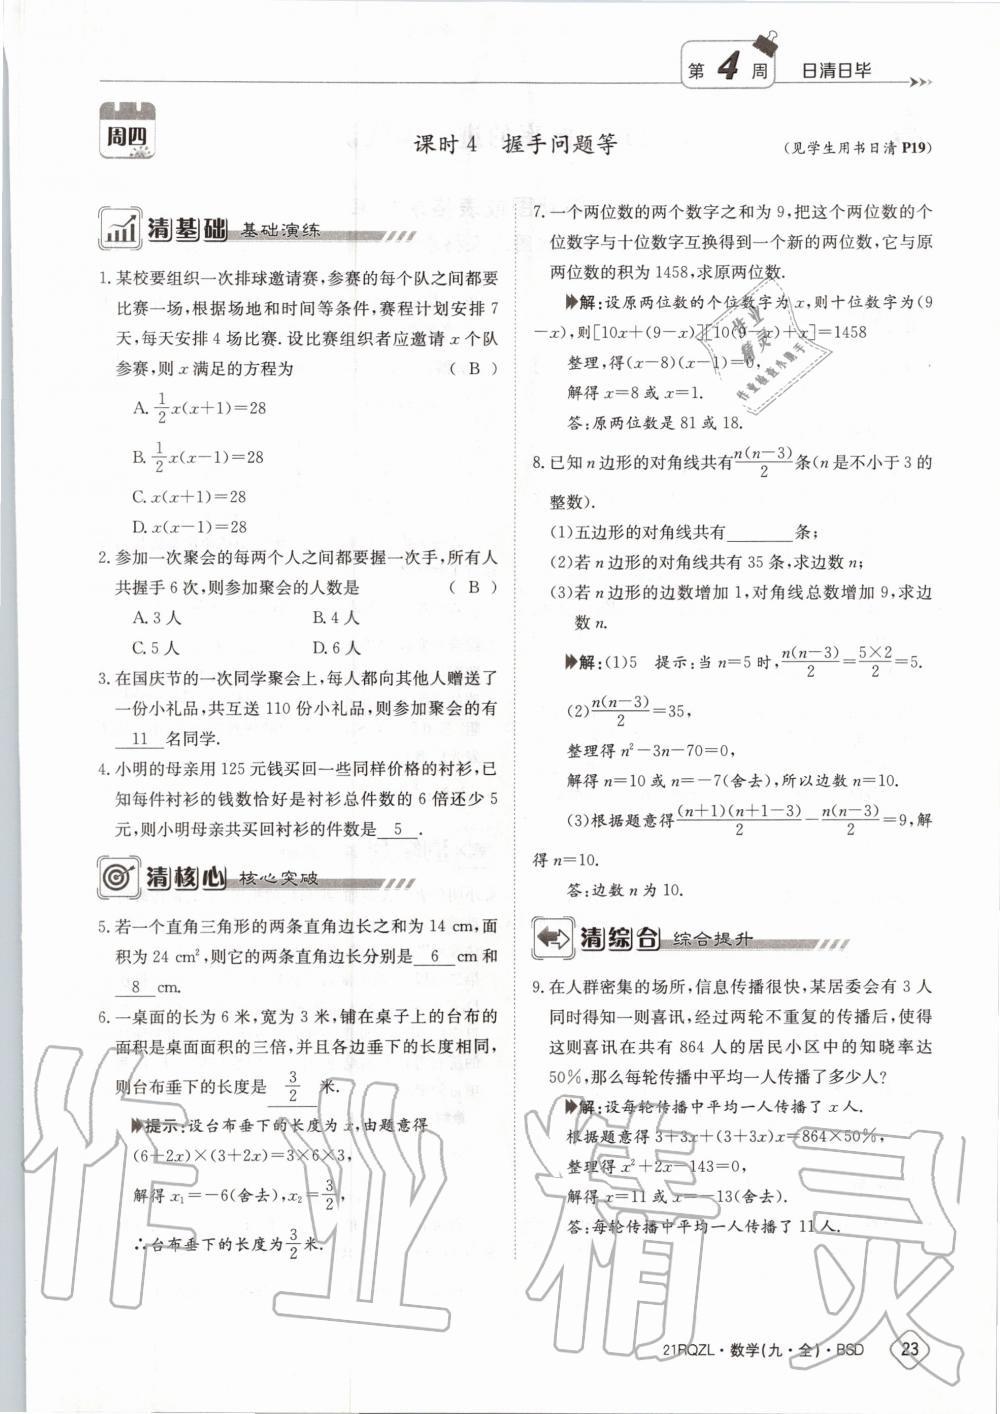 第 4 周 日清日毕
周四
课时4 握手问题等
(见学生用书日清 P19)
清基础 基础演练
1. 某校要组织一次排球邀请赛,参赛的每个队之间都要
比赛一场,根据场地和时间等条件,赛程计划安排 7
天,每天安排 4 场比赛. 设比赛组织者应邀请 x 个队
参赛,则 x 满足的方程为 ( B )
A. \frac{1}{2}x(x+1)=28
B. \frac{1}{2}x(x-1)=28
C. x(x+1)=28
D. x(x-1)=28
2. 参加一次聚会的每两个人之间都要握一次手,所有人
共握手 6 次,则参加聚会的人数是 ( B )
A. 3 人 B. 4 人
C. 5 人 D. 6 人
3. 在国庆节的一次同学聚会上,每人都向其他人赠送了
一份小礼品,共互送 110 份小礼品,则参加聚会的有
11 名同学.
4. 小明的母亲用 125 元钱买回一些同样价格的衬衫,已
知每件衬衫的钱数恰好是衬衫总件数的 6 倍还少 5
元,则小明母亲共买回衬衫的件数是 5 .
清核心 核心突破
5. 若一个直角三角形的两条直角边长之和为 14 cm,面
积为 24 cm²,则它的两条直角边长分别是 6 cm 和
8 cm.
6. 一桌面的长为 6 米,宽为 3 米,铺在桌子上的台布的
面积是桌面面积的三倍,并且各边垂下的长度相同,
则台布垂下的长度是 \frac{3}{2} 米.
提示:设台布垂下的长度为 x,由题意得
(6+2x)×(3+2x)=3×6×3,
解得 x₁=-6(舍去),x₂=\frac{3}{2},
∴台布垂下的长度为\frac{3}{2}米.
7. 一个两位数的两个数字之和为 9,把这个两位数的个
位数字与十位数字互换得到一个新的两位数,它与原
两位数的积为 1458,求原两位数.
解:设原两位数的个位数字为 x,则十位数字为(9
-x),则[10x+(9-x)][10(9-x)+x]=1458
整理,得(x-8)(x-1)=0,
解得 x=8 或 x=1.
答:原两位数是 81 或 18.
8. 已知 n 边形的对角线共有\frac{n(n-3)}{2}条(n 是不小于 3 的
整数).
(1)五边形的对角线共有______条;
(2)若 n 边形的对角线共有 35 条,求边数 n;
(3)若 n 边形的边数增加 1,对角线总数增加 9,求边
数 n.
解:(1)5 提示:当 n=5 时,\frac{n(n-3)}{2}=\frac{5×2}{2}=5.
(2)\frac{n(n-3)}{2}=35,
整理得 n²-3n-70=0,
解得 n=10 或 n=-7(舍去),所以边数 n=10.
(3)根据题意得\frac{(n+1)(n+1-3)}{2}-\frac{n(n-3)}{2}=9,解
得 n=10.
答:边数 n 为 10.
清综合 综合提升
9. 在人群密集的场所,信息传播很快,某居委会有 3 人
同时得知一则喜讯,经过两轮不重复的传播后,使得
这则喜讯在共有 864 人的居民小区中的知晓率达
50%,那么每轮传播中平均一人传播了多少人?
解:设每轮传播中平均一人传播了 x 人.
根据题意得 3+3x+(3+3x)x=864×50%,
整理得 x²+2x-143=0,
解得 x=11 或 x=-13(舍去).
答:每轮传播中平均一人传播了 11 人.
作业精灵
作业精灵
作业检查小助手
21RQZL·数学(九·全)·BSD 23